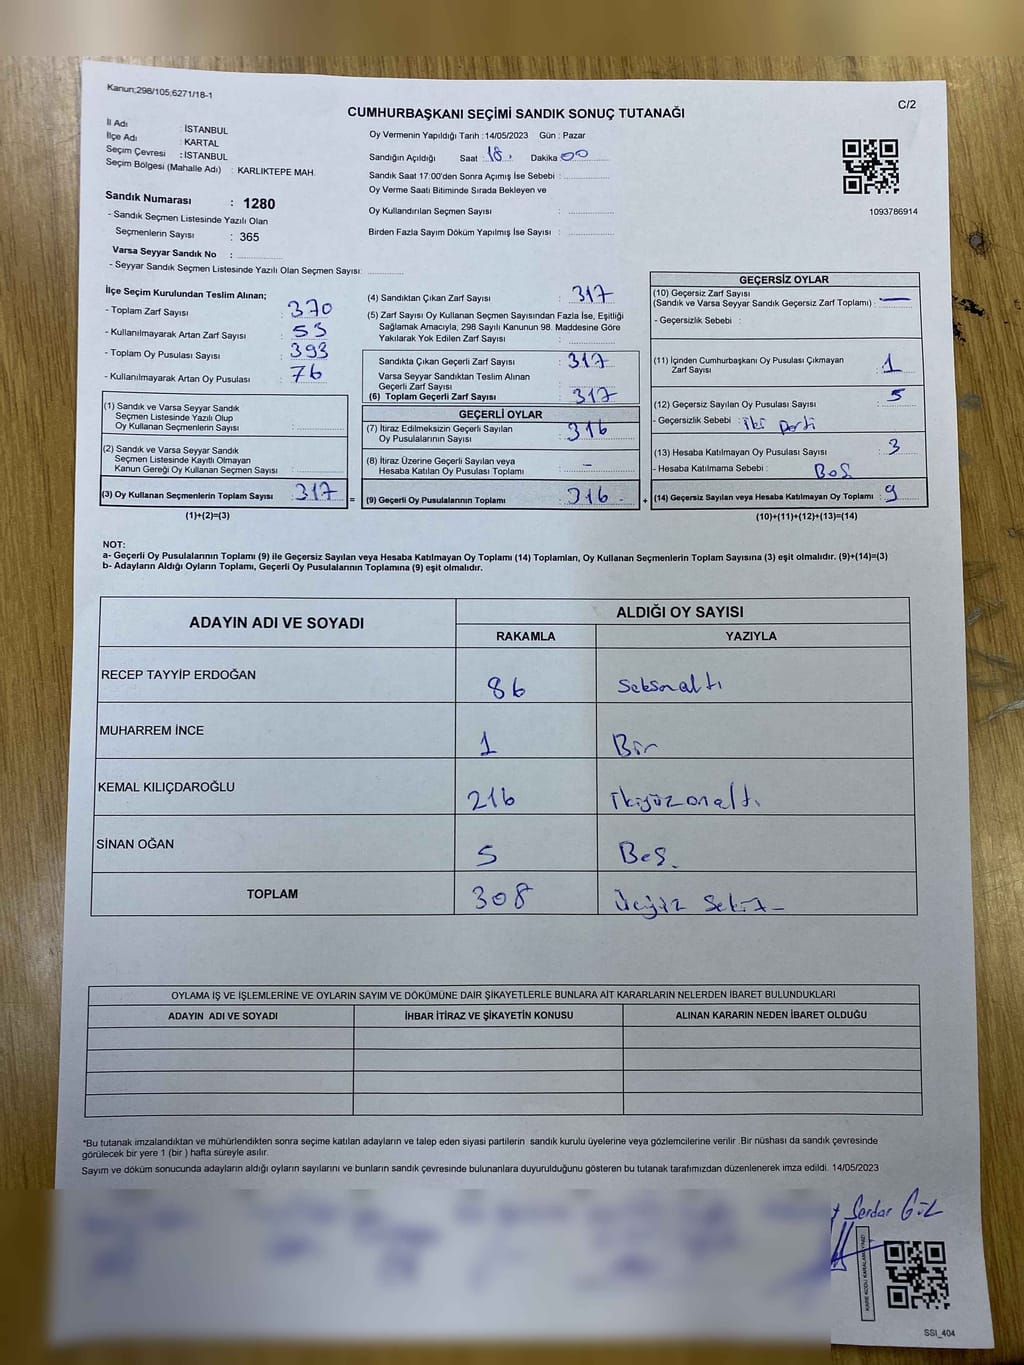 Kanun;298/105;6271/18-1
C/2
CUMHURBAŞKANI SEÇİMİ SANDIK SONUÇ TUTANAĞI
İl Adı : İSTANBUL
İlçe Adı : KARTAL
Seçim Çevresi : İSTANBUL
Seçim Bölgesi (Mahalle Adı) : KARLIKTEPE MAH.
Sandık Numarası : 1280
- Sandık Seçmen Listesinde Yazılı Olan
Seçmenlerin Sayısı : 365
Varsa Seyyar Sandık No :
- Seyyar Sandık Seçmen Listesinde Yazılı Olan Seçmen Sayısı:
Oy Vermenin Yapıldığı Tarih :14/05/2023 Gün : Pazar
Sandığın Açıldığı Saat : 18. Dakika 00
Sandık Saat 17:00'den Sonra Açımış İse Sebebi :
Oy Verme Saati Bitiminde Sırada Bekleyen ve
Oy Kullandırılan Seçmen Sayısı :
Birden Fazla Sayım Döküm Yapılmış İse Sayısı :
1093786914
İlçe Seçim Kurulundan Teslim Alınan;
- Toplam Zarf Sayısı : 370
- Kullanılmayarak Artan Zarf Sayısı : 53
- Toplam Oy Pusulası Sayısı : 393
- Kullanılmayarak Artan Oy Pusulası : 76
(1) Sandık ve Varsa Seyyar Sandık
Seçmen Listesinde Yazılı Olup
Oy Kullanan Seçmenlerin Sayısı :
(2) Sandık ve Varsa Seyyar Sandık
Seçmen Listesinde Kayıtlı Olmayan
Kanun Gereği Oy Kullanan Seçmen Sayısı :
(3) Oy Kullanan Seçmenlerin Toplam Sayısı : 317 =
(1)+(2)=(3)
(4) Sandıktan Çıkan Zarf Sayısı : 317
(5) Zarf Sayısı Oy Kullanan Seçmen Sayısından Fazla İse, Eşitliği
Sağlamak Amacıyla, 298 Sayılı Kanunun 98. Maddesine Göre
Yakılarak Yok Edilen Zarf Sayısı :
Sandıkta Çıkan Geçerli Zarf Sayısı : 317
Varsa Seyyar Sandıktan Teslim Alınan
Geçerli Zarf Sayısı :
(6) Toplam Geçerli Zarf Sayısı : 317
GEÇERLİ OYLAR
(7) İtiraz Edilmeksizin Geçerli Sayılan
Oy Pusulalarının Sayısı : 316
(8) İtiraz Üzerine Geçerli Sayılan veya
Hesaba Katılan Oy Pusulası Toplamı : -
(9) Geçerli Oy Pusulalarının Toplamı : 316 - +
GEÇERSİZ OYLAR
(10) Geçersiz Zarf Sayısı
(Sandık ve Varsa Seyyar Sandık Geçersiz Zarf Toplamı) : —
- Geçersizlik Sebebi :
(11) İçinden Cumhurbaşkanı Oy Pusulası Çıkmayan
Zarf Sayısı : 1
(12) Geçersiz Sayılan Oy Pusulası Sayısı : 5
- Geçersizlik Sebebi : iki parti
(13) Hesaba Katılmayan Oy Pusulası Sayısı : 3
- Hesaba Katılmama Sebebi : Boş
(14) Geçersiz Sayılan veya Hesaba Katılmayan Oy Toplamı : 9
(10)+(11)+(12)+(13)=(14)
NOT:
a- Geçerli Oy Pusulalarının Toplamı (9) ile Geçersiz Sayılan veya Hesaba Katılmayan Oy Toplamı (14) Toplamları, Oy Kullanan Seçmenlerin Toplam Sayısına (3) eşit olmalıdır. (9)+(14)=(3)
b- Adayların Aldığı Oyların Toplamı, Geçerli Oy Pusulalarının Toplamına (9) eşit olmalıdır.
ADAYIN ADI VE SOYADI
ALDIĞI OY SAYISI
RAKAMLA YAZIYLA
RECEP TAYYİP ERDOĞAN 86 Seksenaltı
MUHARREM İNCE 1 Bir
KEMAL KILIÇDAROĞLU 216 ikiyüzonaltı
SİNAN OĞAN 5 Beş.
TOPLAM 308 Üçyüz Sekiz
OYLAMA İŞ VE İŞLEMLERİNE VE OYLARIN SAYIM VE DÖKÜMÜNE DAİR ŞİKAYETLERLE BUNLARA AİT KARARLARIN NELERDEN İBARET BULUNDUKLARI
ADAYIN ADI VE SOYADI İHBAR İTİRAZ VE ŞİKAYETİN KONUSU ALINAN KARARIN NEDEN İBARET OLDUĞU
*Bu tutanak imzalandıktan ve mühürlendikten sonra seçime katılan adayların ve talep eden siyasi partilerin sandık kurulu üyelerine veya gözlemcilerine verilir .Bir nüshası da sandık çevresinde
görülecek bir yere 1 (bir ) hafta süreyle asılır.
Sayım ve döküm sonucunda adayların aldığı oyların sayılarını ve bunların sandık çevresinde bulunanlara duyurulduğunu gösteren bu tutanak tarafımızdan düzenlenerek imza edildi. 14/05/2023
Serdar Gül
KARE KODU KARALAMAYINIZ!
SSI_404